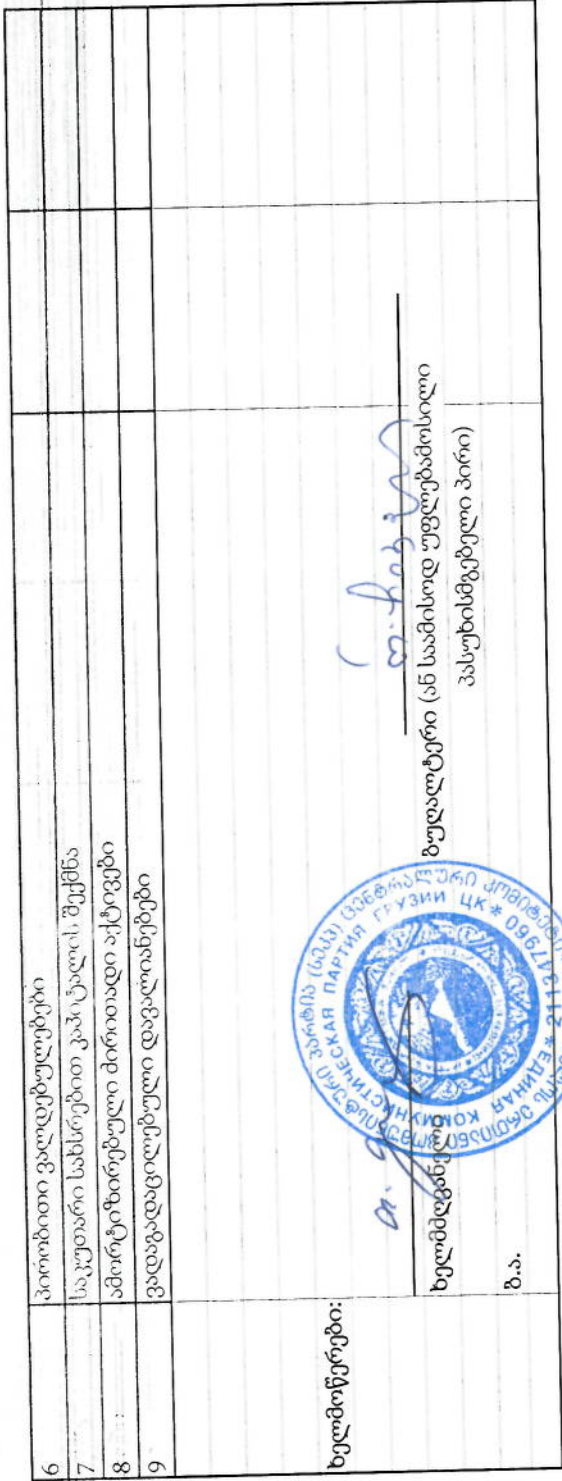 6 პირობითი ვალდებულებები
7 საკუთარი სახსრებით კაპიტალის შექმნა
8 ამორტიზირებული ძირითადი აქტივები
9 ვადაგადაცილებული დავალიანებები
ხელმოწერები:
ხელმძღვანელი
ბუღალტერი (ან საამისოდ უფლებამოსილი
პასუხისმგებელი პირი)
ბ.ა.
პარტია (სეკპ) ცენტრალური კომიტეტი
ЕДИНАЯ КОММУНИСТИЧЕСКАЯ ПАРТИЯ ГРУЗИИ ЦК